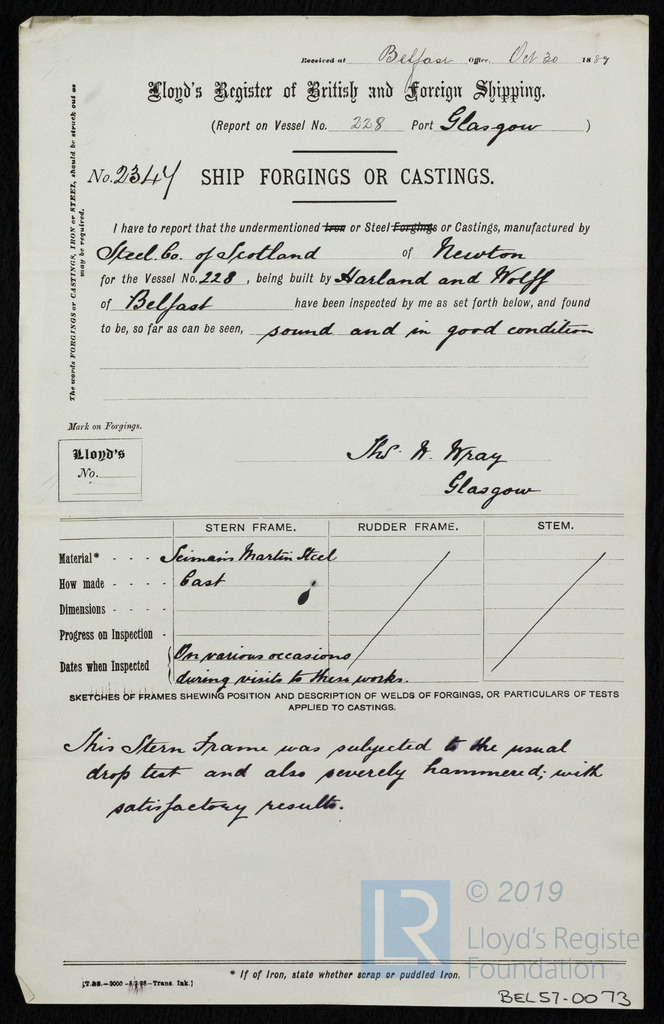 Received at Belfast Office. Oct 20 1887
Lloyd's Register of British and Foreign Shipping.
(Report on Vessel No. 228 Port Glasgow )
No. 2347 SHIP FORGINGS OR CASTINGS.
The words FORGINGS or CASTINGS, IRON or STEEL, should be struck out as
may be required.
I have to report that the undermentioned Iron or Steel Forgings or Castings, manufactured by
Steel Co. of Scotland of Newton
for the Vessel No. 228, being built by Harland and Wolff
of Belfast have been inspected by me as set forth below, and found
to be, so far as can be seen, sound and in good condition
Mark on Forgings.
Lloyd's
No.
Thos. W. Wray
Glasgow
STERN FRAME. RUDDER FRAME. STEM.
Material* - - - Seimains Martin Steel
How made - - - - Cast
Dimensions - - - -
Progress on Inspection -
Dates when Inspected { On various occasions
during visits to these works.
SKETCHES OF FRAMES SHEWING POSITION AND DESCRIPTION OF WELDS OF FORGINGS, OR PARTICULARS OF TESTS
APPLIED TO CASTINGS.
This Stern Frame was subjected to the usual
drop test and also severely hammered; with
satisfactory results.
LR © 2019
Lloyd's Register
Foundation
* If of Iron, state whether scrap or puddled Iron.
[T.&S.—2000 —Trans. Ink.]
BEL57-0073